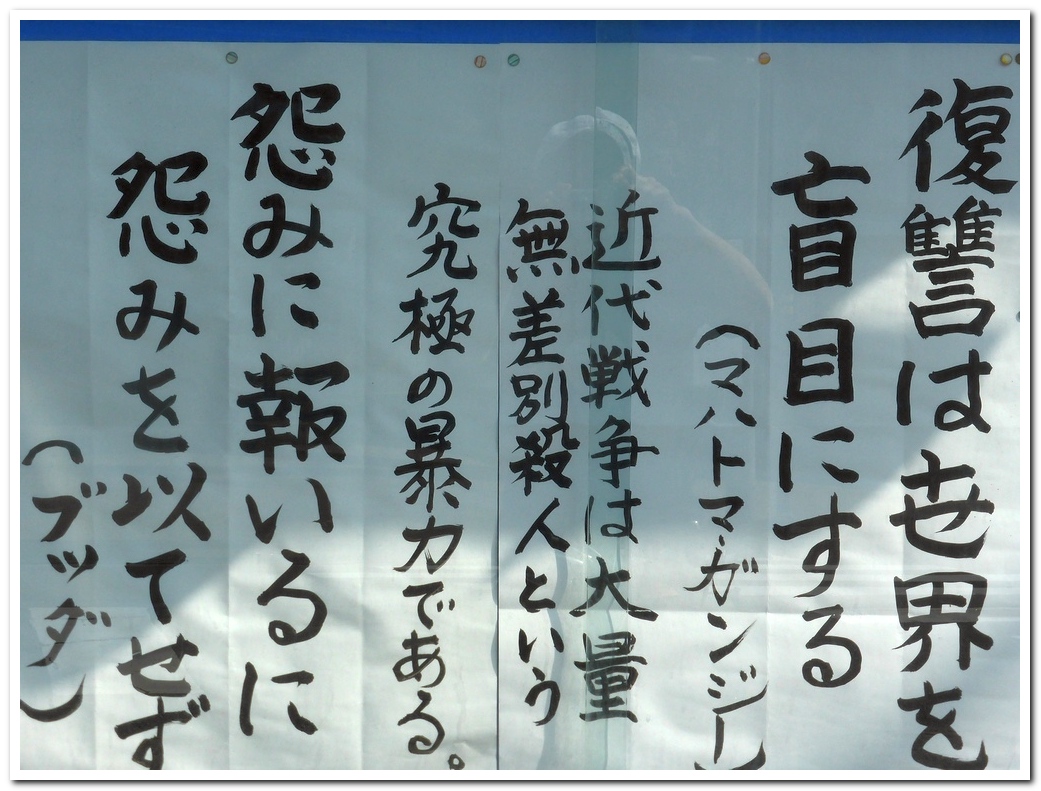 復讐は世界を
盲目にする
（マハトマ・ガンジー）
近代戦争は大量
無差別殺人という
究極の暴力である。
怨みに報いるに
怨みを以てせず
（ブッダ）